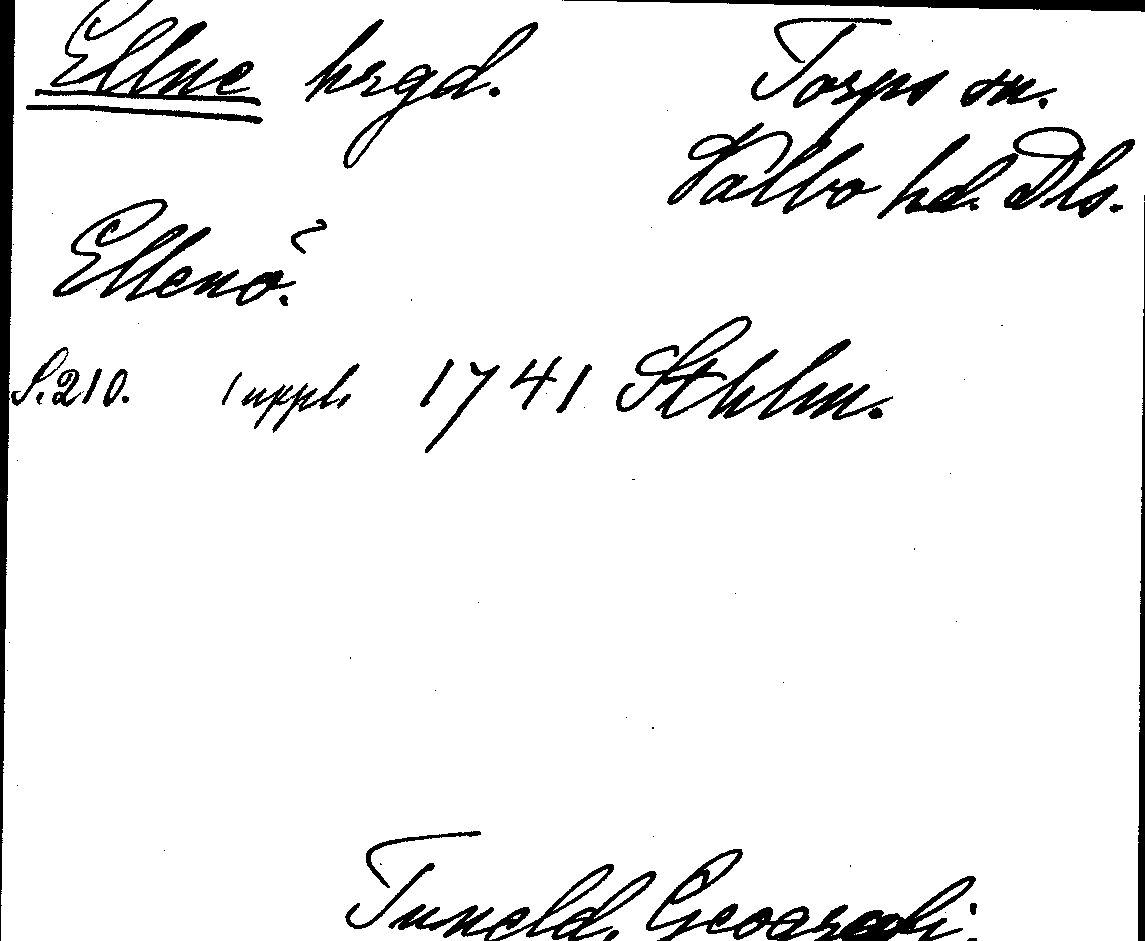 Ellne hrgd. Torps sn.
Valbo hd. Dls.
Ellenö.
S. 210. 1 uppl. 1741 Sthlm.
Tuneld, Geografi.